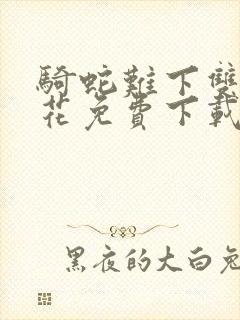 騎蛇難下雙
花免費下載
黑夜的大白兔